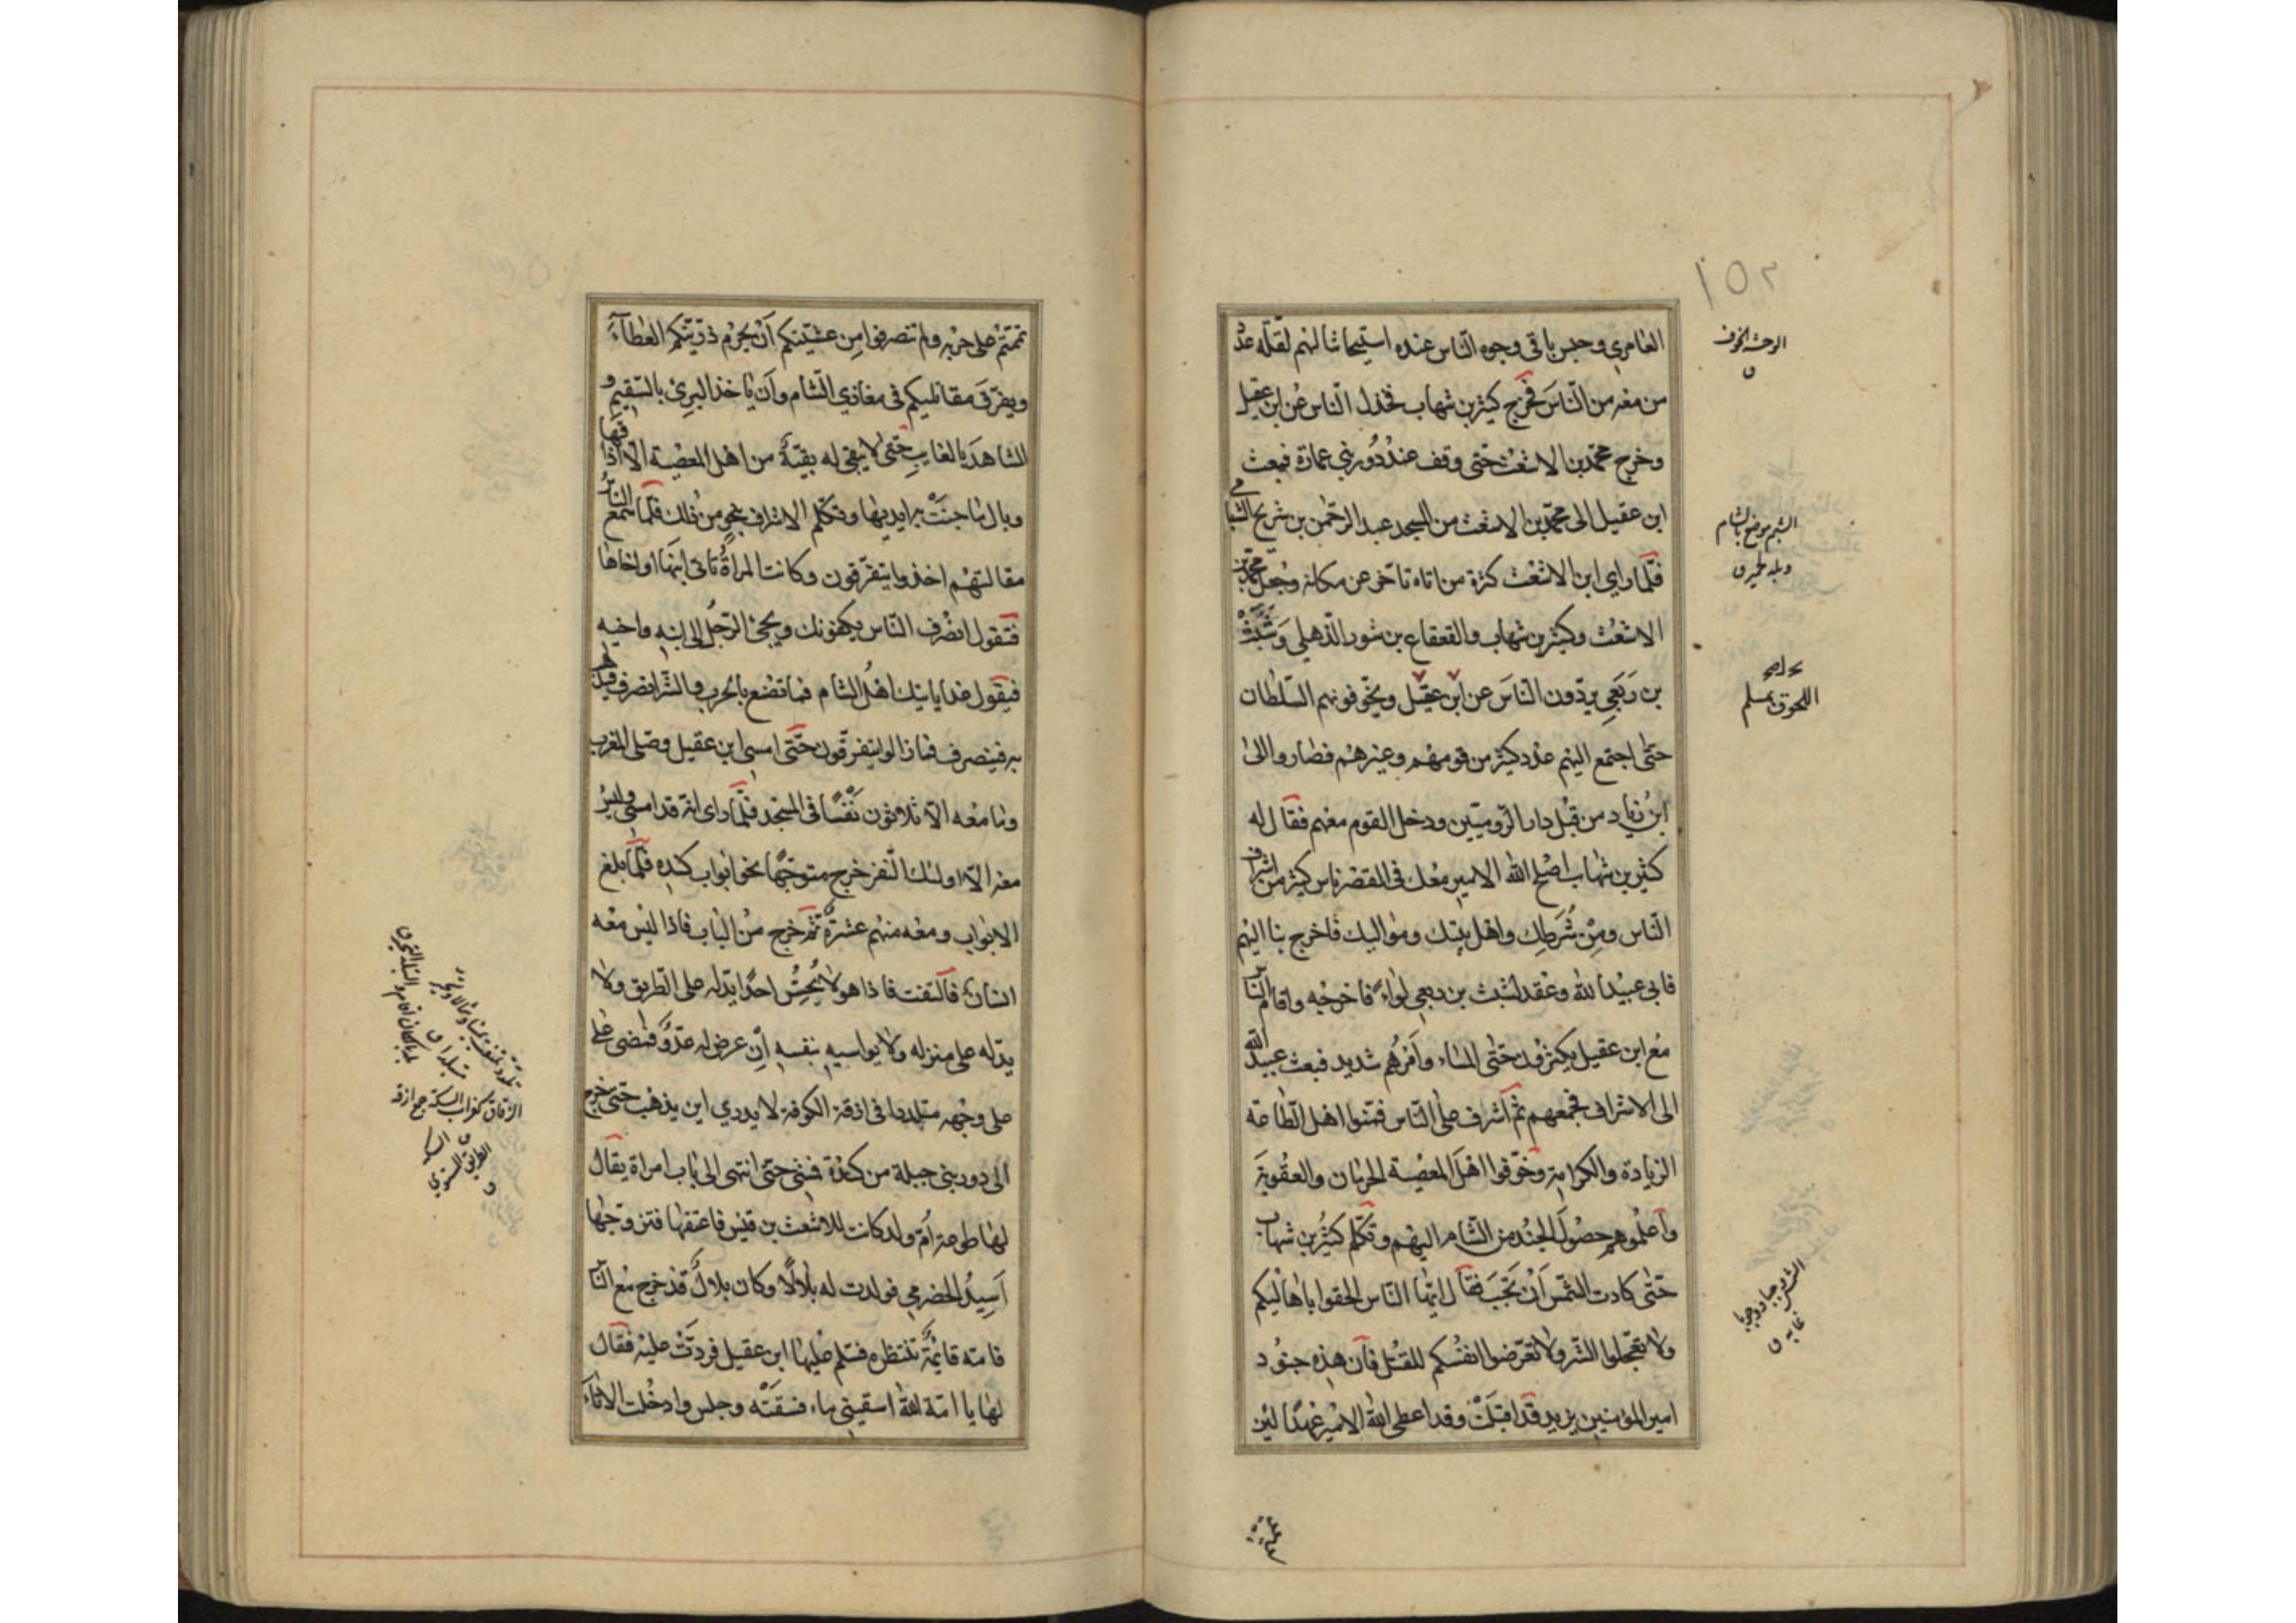 ١٥٢
العامري وحبس باقي وجوه الناس عنده استيحاشا اليهم لقلة عدد
من معه من الناس فخرج كثير بن شهاب فخذل الناس عن ابن عقيل
وخرج محمد بن الاشعث حتى وقف عند دور بني عمارة فبعث
ابن عقيل الى محمد بن الاشعث من المسجد عبد الرحمن بن شريح الشبامي
فلما راي ابن الاشعث كثرة من اتاه تاخر عن مكانه وجعل محمد بن
الاشعث وكثير بن شهاب والقعقاع بن شور الذهلي وشبث
بن ربعي يردون الناس عن ابن عقيل ويخوفونهم السلطان
حتى اجتمع اليهم عدد كثير من قومهم وغيرهم فصاروا الى
ابن زياد من قبل دار الروميين ودخل القوم معهم فقال له
كثير بن شهاب اصلح الله الامير معك في القصر ناس كثير من اشراف
الناس ومن شرطك واهل بيتك ومواليك فاخرج بنا اليهم
فابى عبيد الله وعقد لشبث بن ربعي لواء فاخرجه واقام الناس
مع ابن عقيل يكثرون حتى المساء وامرهم شديد فبعث عبيد الله
الى الاشراف فجمعهم ثم اشرف على الناس فمنوا اهل الطاعة
الزيادة والكرامة وخوفوا اهل المعصية الحرمان والعقوبة
واعلموهم حصول الجند من الشام اليهم وتكلم كثير بن شهاب
حتى كادت الشمس ان تجب فقال ايها الناس الحقوا باهاليكم
ولا تعجلوا الشر ولا تعرضوا انفسكم للقتل فان هذه جنود
امير المؤمنين يزيد قد اقبلت وقد اعطى الله الامير عهدا لئن
الوحشة الخوف
ق
الشبم موضع بالشام
اللحوق بمسلم
تممتم على حربه ولم تنصرفوا من عشيتكم ان يحرم ذريتكم العطاء
ويفرق مقاتليكم في مغازي الشام وان ياخذ البرئ بالسقيم و
الشاهد بالغايب حتى لا يبقى له بقية من اهل المعصية الا اذاقها
وبال ما جنت ايديها وتكلم الاشراف بنحو من ذلك فلما سمع الناس
مقالتهم اخذوا يتفرقون وكانت المراة تاتي ابنها او اخاها
فتقول انصرف الناس يكفونك ويجئ الرجل الى ابنه واخيه
فيقول غدا ياتيك اهل الشام فما تصنع بالحرب والشر انصرف فيذهب
به فينصرف فما زالوا يتفرقون حتى امسى ابن عقيل وصلى المغرب
وما معه الا ثلاثون نفسا في المسجد فلما راى انه قد امسى وليس
معه الا اولئك النفر خرج متوجها نحو ابواب كنده فلما بلغ
الابواب ومعه منهم عشرة ثم خرج من الباب فاذا ليس معه
انسان فالتفت فاذا هو لا يحس احدا يدله على الطريق ولا
يدله على منزله ولا يواسيه بنفسه ان عرض له عدو فمضى على
على وجهه متلددا في ازقة الكوفة لا يدري اين يذهب حتى خرج
الى دور بني جبلة من كندة فمشى حتى انتهى الى باب امراة يقال
لها طوعة ام ولد كانت للاشعث بن قيس فاعتقها فتزوجها
اسيد الحضرمي فولدت له بلالا وكان بلال قد خرج مع الناس
فامه قائمة تنتظره فسلم عليها ابن عقيل فردت عليه فقال
لها يا امة الله اسقيني ماء فسقته وجلس وادخلت الاناء
الزقاق كغراب السكة جمع ازقة
ق
الطريق المستوي
ق